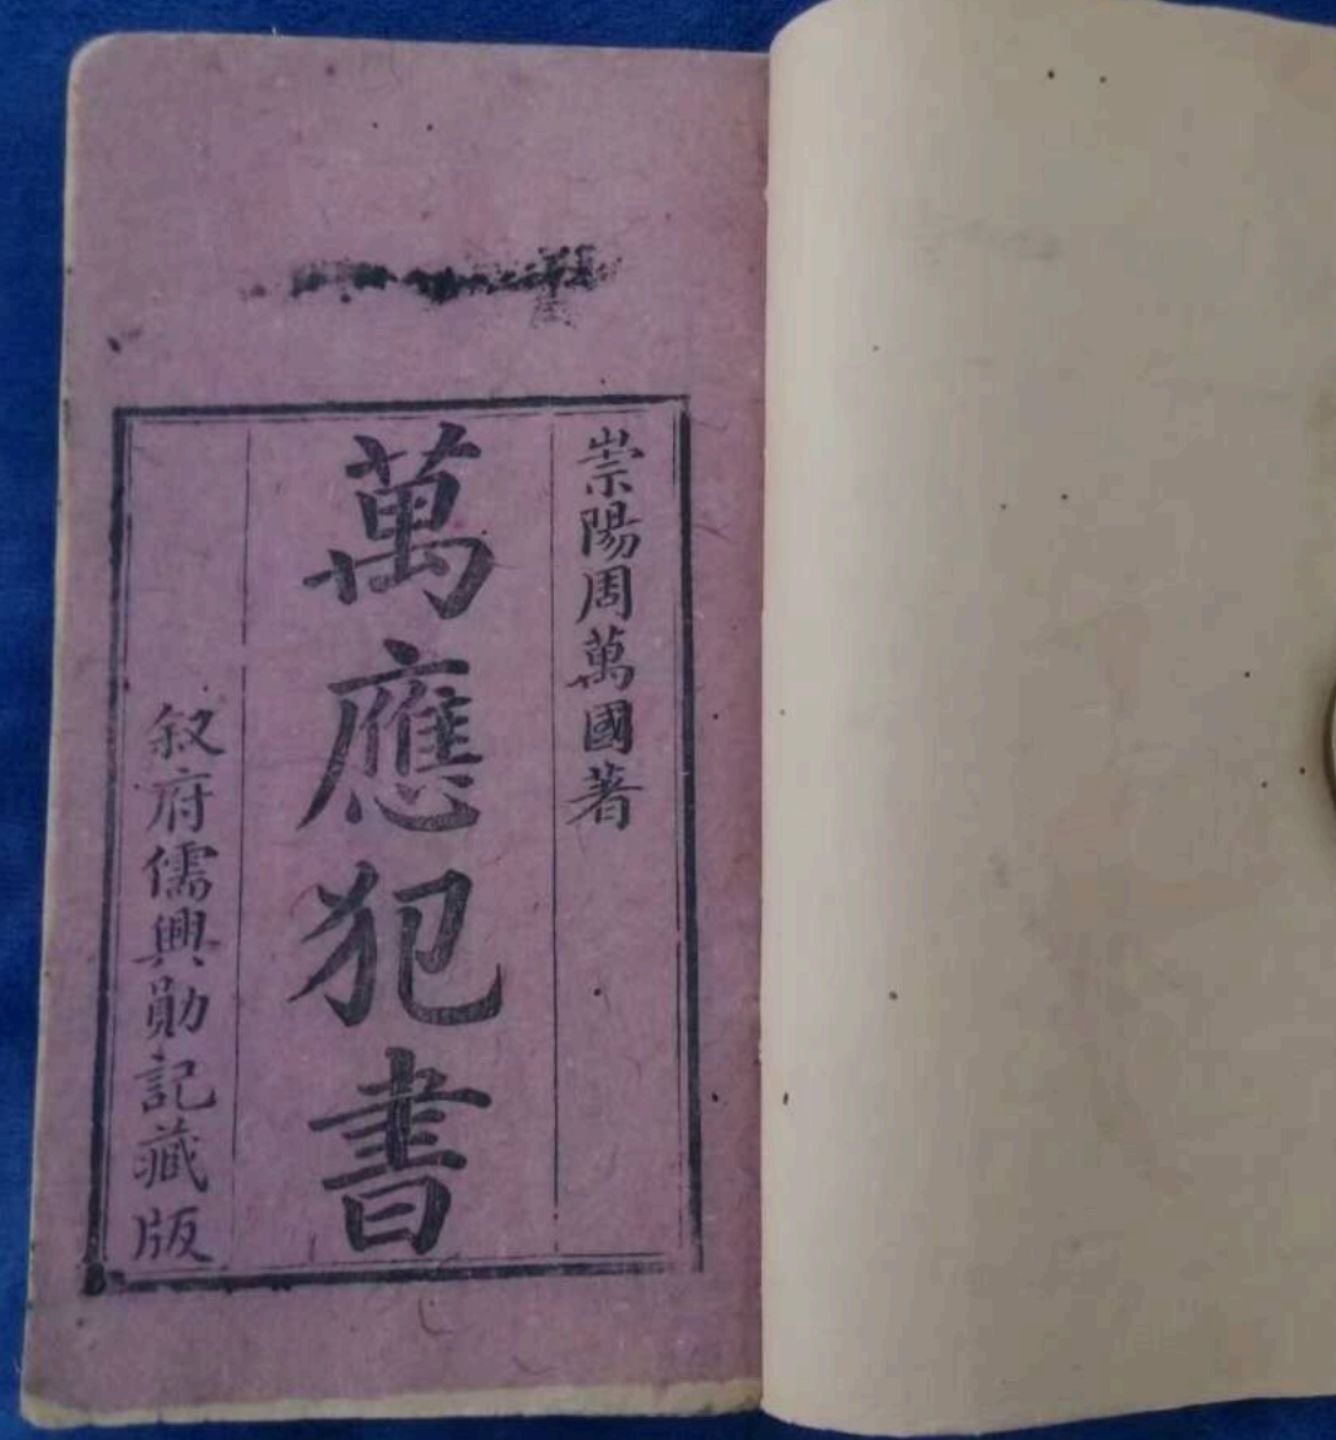 崇陽周萬國著
萬應犯書
叙府儒興勛記藏版